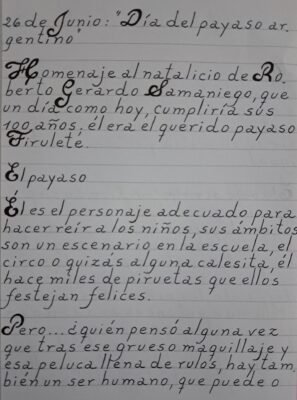 26 de Junio: "Día del payaso ar.
gentino"
Homenaje al natalicio de Ro.
berto Gerardo Samaniego, que
un día como hoy, cumpliría sus
100 años, él era el querido payaso
Firulete.
El payaso
Él es el personaje adecuado para
hacer reír a los niños, sus ámbitos
son un escenario en la escuela, el
circo o quizás alguna calesita, él
hace miles de piruetas que ellos
festejan felices.
Pero... ¿quién pensó alguna vez
que tras ese grueso maquillaje y
esa peluca llena de rulos, hay tam.
bién un ser humano, que puede o